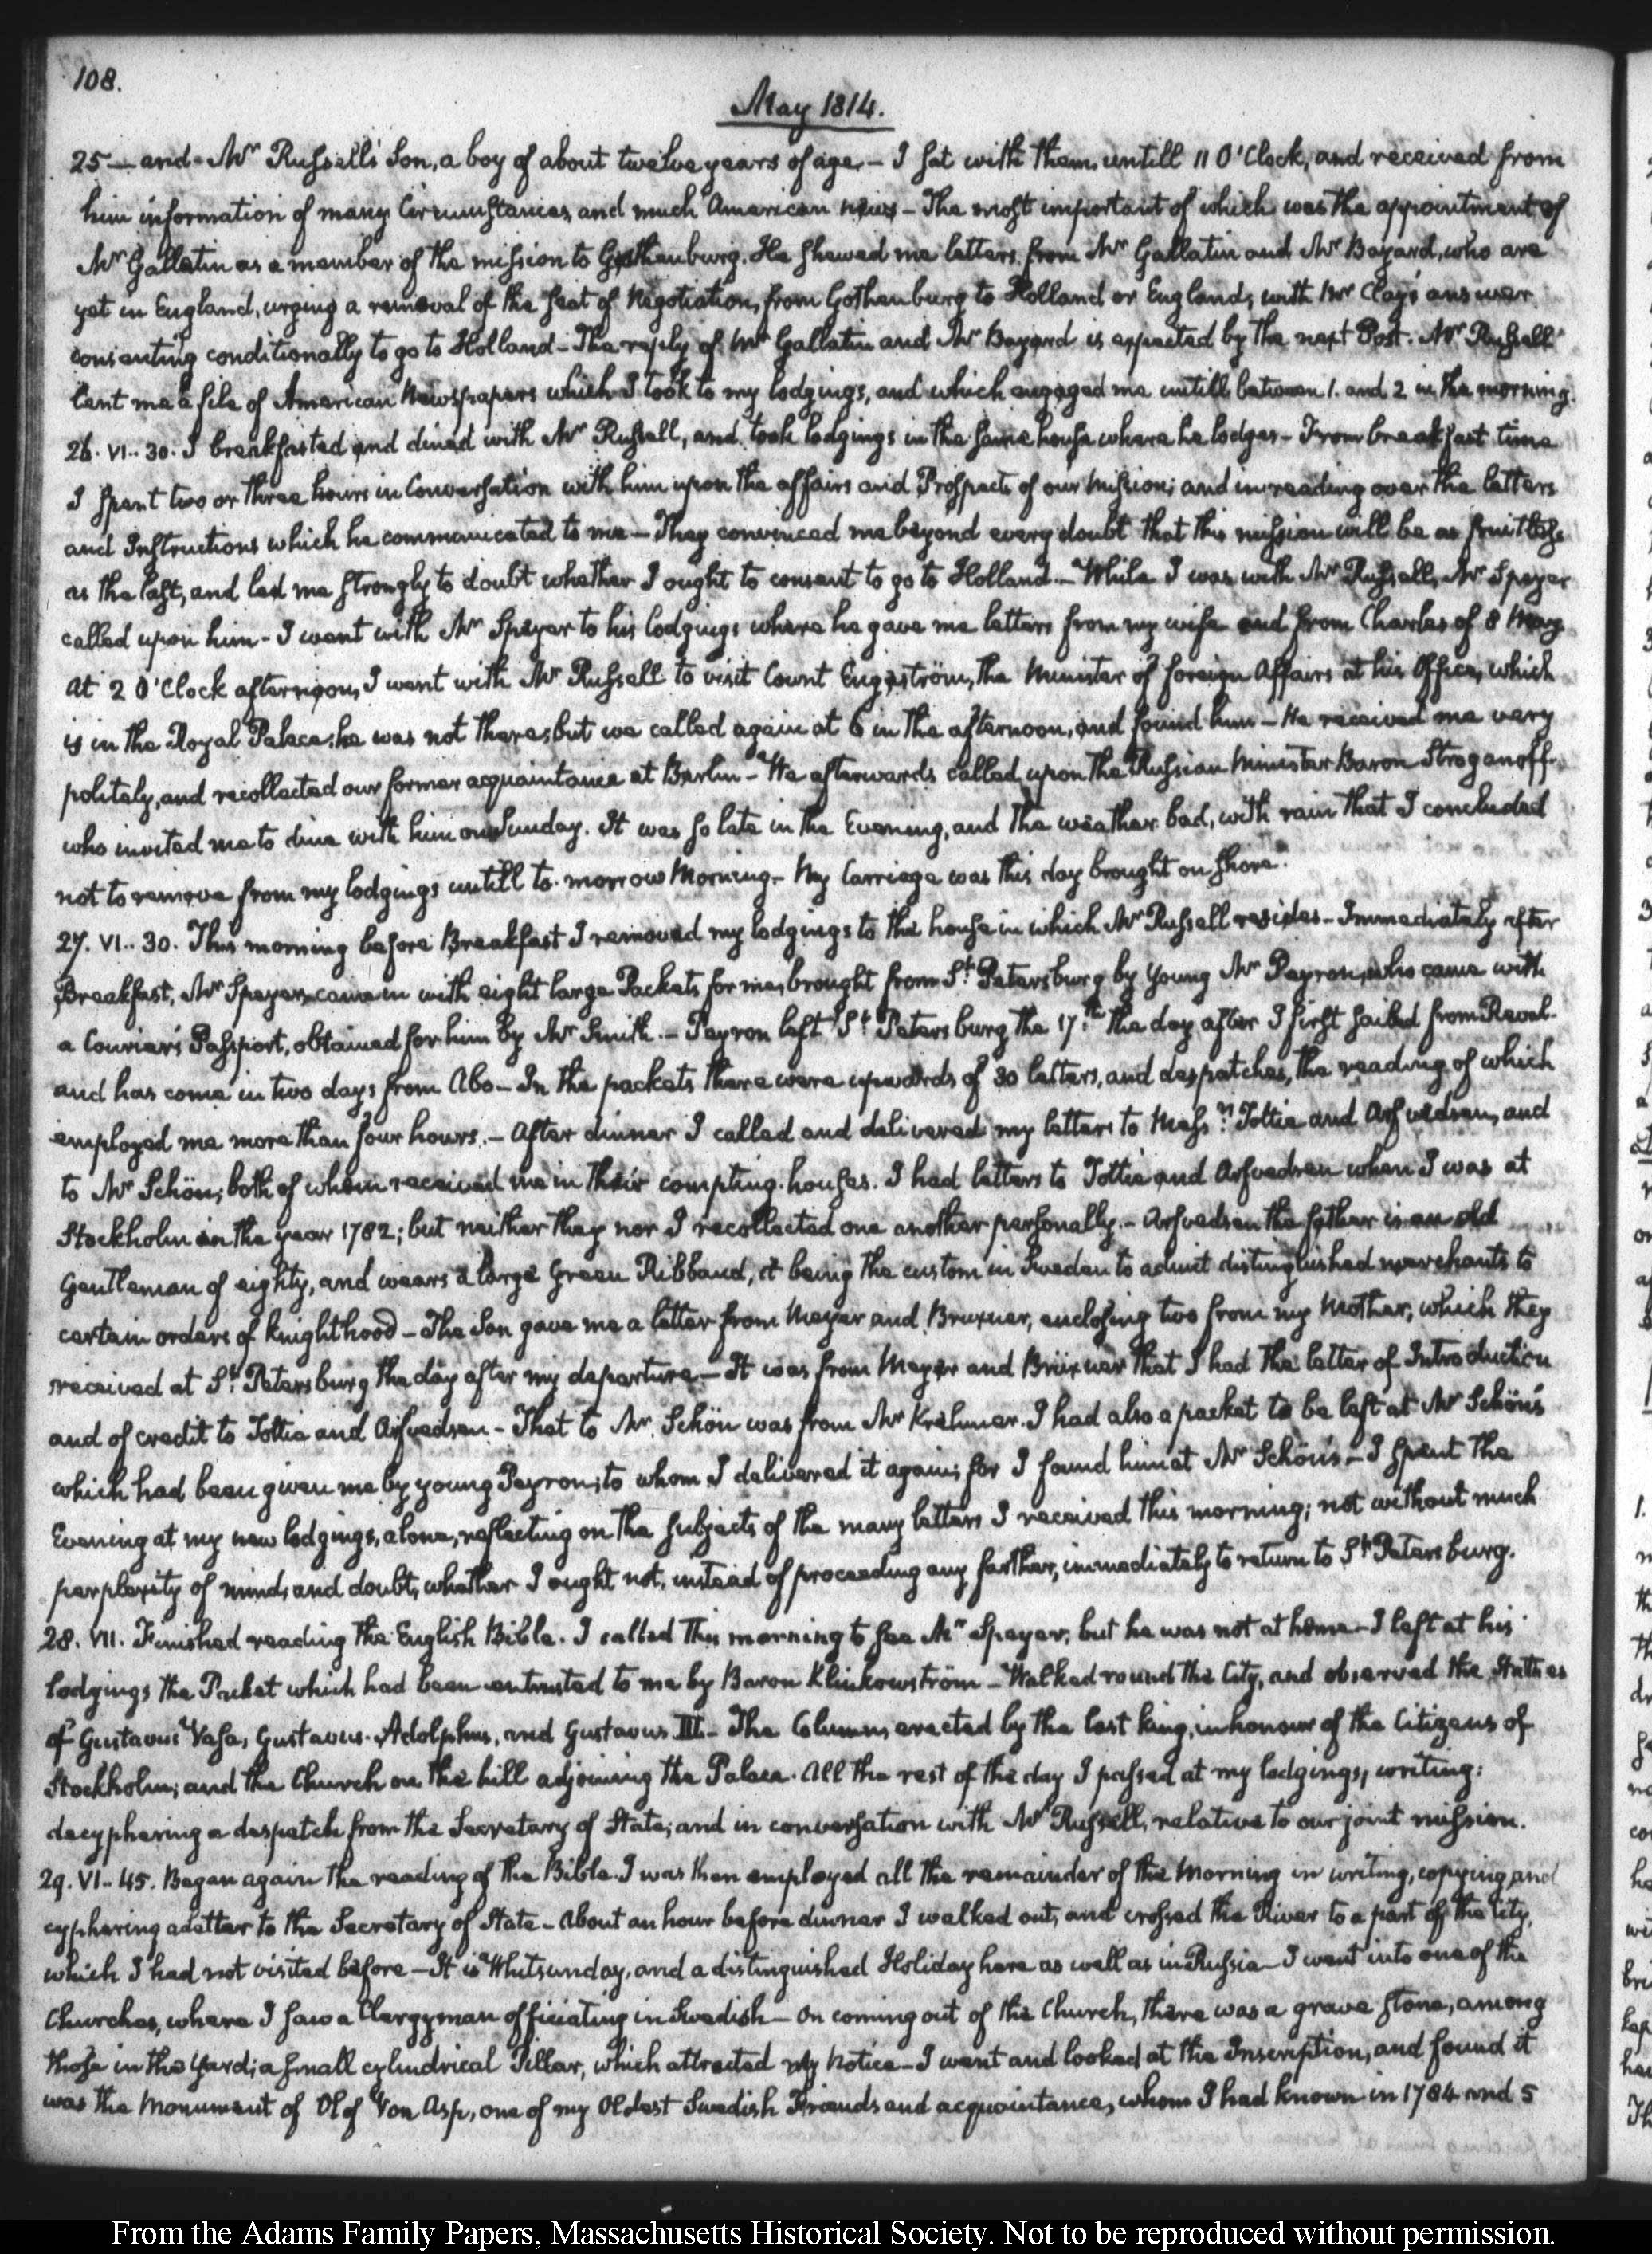 108.
May 1814.
25 — and Mr Russell's Son, a boy of about twelve years of age — I sat with them untill 11 O'Clock, and received from
him information of many Circumstances, and much American news — The most important of which was the appointment of
Mr Gallatin as a member of the mission to Gothenburg. He shewed me letters from Mr Gallatin and Mr Bayard, who are
yet in England, urging a removal of the seat of Negotiation, from Gothenburg to Holland or England; with Mr Clay's answer
consenting conditionally to go to Holland — The reply of Mr Gallatin and Mr Bayard is expected by the next Post. Mr Russell
lent me a file of American Newspapers which I took to my lodgings, and which engaged me untill between 1. and 2 in the morning.
26. VI..30. I breakfasted and dined with Mr Russell, and took lodgings in the same house where he lodges — From breakfast time
I spent two or three hours in Conversation with him upon the affairs and Prospects of our Mission; and in reading over the letters
and Instructions which he communicated to me — They convinced me beyond every doubt that this mission will be as fruitless
as the last, and led me strongly to doubt whether I ought to consent to go to Holland — While I was with Mr Russell, Mr Speyer
called upon him — I went with Mr Speyer to his lodgings where he gave me letters from my wife and from Charles of 8 May
At 2 O'Clock afternoon, I went with Mr Russell to visit Count Engeström, the Minister of foreign Affairs at his Office, which
is in the Royal Palace; he was not there; but we called again at 6 in the afternoon, and found him — He received me very
politely, and recollected our former acquaintance at Berlin — We afterwards called upon the Russian Minister Baron Stroganoff
who invited me to dine with him on Sunday. It was so late in the Evening, and the weather bad, with rain that I concluded
not to remove from my lodgings untill to-morrow Morning — My Carriage was this day brought on shore.
27. VI..30. This morning before Breakfast I removed my lodgings to the house in which Mr Russell resides — Immediately after
Breakfast, Mr Speyer came in with eight large Packets for me, brought from St. Petersburg by young Mr Peyron, who came with
a Courier's Passport, obtained for him by Mr Smith. — Peyron left St Petersburg the 17th. the day after I first sailed from Reval.
and has come in two days from Abo — In the packets there were upwards of 30 letters, and despatches, the reading of which
employed me more than four hours. — After dinner I called and delivered my letters to Messrs. Tottie and Arfvedsen, and
to Mr Schön; both of whom received me in their compting-houses. I had letters to Tottie and Arfvedsen when I was at
Stockholm in the year 1782; but neither they nor I recollected one another personally. — Arfvedsen the father is an old
Gentleman of eighty, and wears a large Green Ribband, it being the custom in Sweden to admit distinguished merchants to
certain orders of knighthood — The Son gave me a letter from Meyer and Bruxner, enclosing two from my Mother, which they
received at St. Petersburg the day after my departure — It was from Meyer and Brüxner that I had the letter of Introduction
and of credit to Tottie and Arfvedsen — That to Mr. Schön was from Mr Krehmer. I had also a packet to be left at Mr Schön's
which had been given me by young Peyron; to whom I delivered it again; for I found him at Mr Schön's — I spent the
Evening at my new lodgings, alone, reflecting on the subjects of the many letters I received this morning; not without much
perplexity of mind, and doubt, whether I ought not, instead of proceeding any farther, immediately to return to St Petersburg.
28. VII. Finished reading the English Bible. I called this morning to see Mr Speyer, but he was not at home — I left at his
lodgings the Packet which had been entrusted to me by Baron Klinkowström — Walked round the City, and observed the Statues
of Gustavus Vasa, Gustavus-Adolphus, and Gustavus III — The Column erected by the last king, in honour of the Citizens of
Stockholm; and the Church on the hill adjoining the Palace. All the rest of the day I passed at my lodgings, writing:
decyphering a despatch from the Secretary of State; and in conversation with Mr Russell, relative to our joint mission.
29. VI..45. Began again the reading of the Bible. I was then employed all the remainder of the Morning in writing, copying and
cyphering a letter to the Secretary of State — About an hour before dinner I walked out, and crossed the River to a part of the City,
which I had not visited before — It is Whitsunday, and a distinguished Holiday here as well as in Russia — I went into one of the
Churches, where I saw a Clergyman officiating in Swedish — On coming out of the Church, there was a grave stone, among
those in the Yard; a small cylindrical Pillar, which attracted my Notice — I went and looked at the Inscription, and found it
was the Monument of Olof Von Asp, one of my Oldest Swedish Friends and acquaintance, whom I had known in 1784 and 5
From the Adams Family Papers, Massachusetts Historical Society. Not to be reproduced without permission.